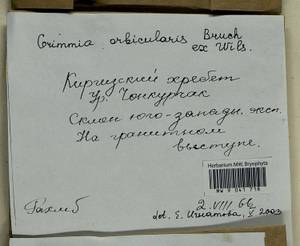 Grimmia orbicularis Bruch
ex Wils.
Киргизский хребет
Ур. Чонкурчак
Склон юго-западн. эксп.
На гранитном
выступе.
Herbarium MW, Bryophyta
MW 9 041 716
2. VIII 66
det. E. Игнатова, X 2003